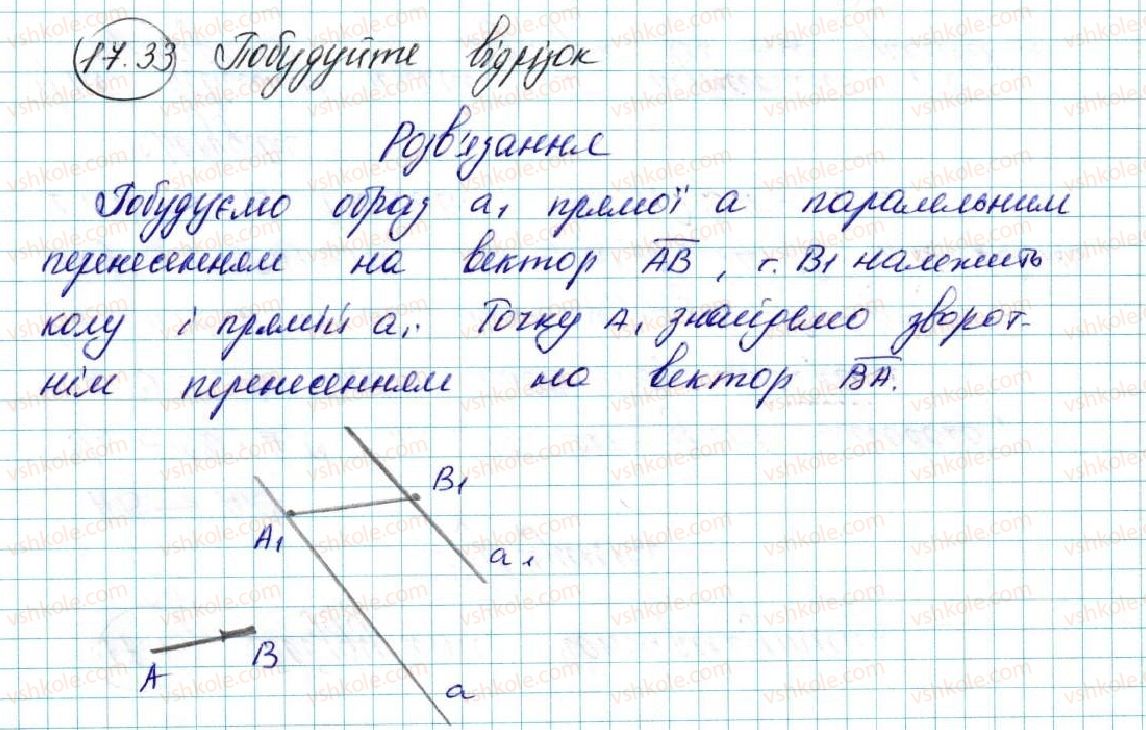 17.33 Побудуйте відрізок
Розв'язання
Побудуємо образ a₁ прямої a паралельним
перенесенням на вектор AB, т. B₁ належить
колу і прямій a₁. Точку A₁ знайдемо зворот-
нім перенесенням на вектор BA.
B₁
A₁
a₁
B
A
a
vshkole.com